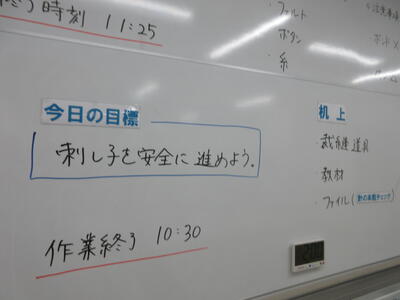 終了時刻 11:25
・フェルト
ボタン
・糸
今日の目標
刺し子を安全に進めよう。
作業終了 10:30
机上
・裁縫道具
・教材
・ファイル(針の本数チェック)